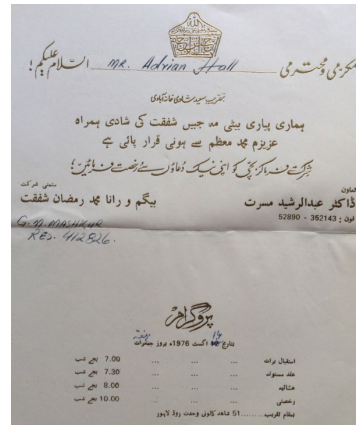 مکرمی و محترمی Mr. Adrian Hall السلام علیکم!
بتقریب سعید شادی خانہ آبادی
ہماری پیاری بیٹی مہ جبیں شفقت کی شادی ہمراہ
عزیزم محمد معظم سے ہونی قرار پائی ہے
شرکت فرما کر بچی کو اپنی نیک دعاؤں سے رخصت فرمائیں؛
متمنی شرکت
بیگم و رانا محمد رمضان شفقت
ڈاکٹر عبدالرشید مسرت
فون : 352143 - 52890
G. M. MASHKUR
RES. 412826.
پروگرام
بتاریخ 14 اگست 1976ء بروز جمعرات ہفتہ
استقبال برات ... ... ... 7.00 بجے شب
عقد مسنونہ ... ... ... 7.30 بجے شب
عشائیہ ... ... ... 8.00 بجے شب
رخصتی ... ... ... 10.00 بجے شب
بمقام تقریب ........ 51 شاہد کالونی وحدت روڈ لاہور